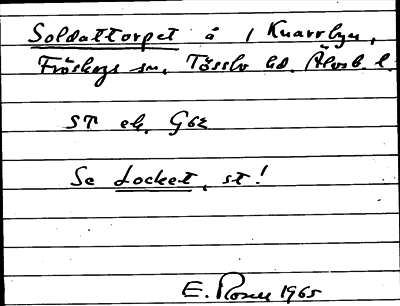 Soldattorpet å 1 Knarrbyn,
Fröskogs sn, Tössbo hd. Älvsb. l.
ST ek. G62
Se Locket, st!
E. Rosell 1965